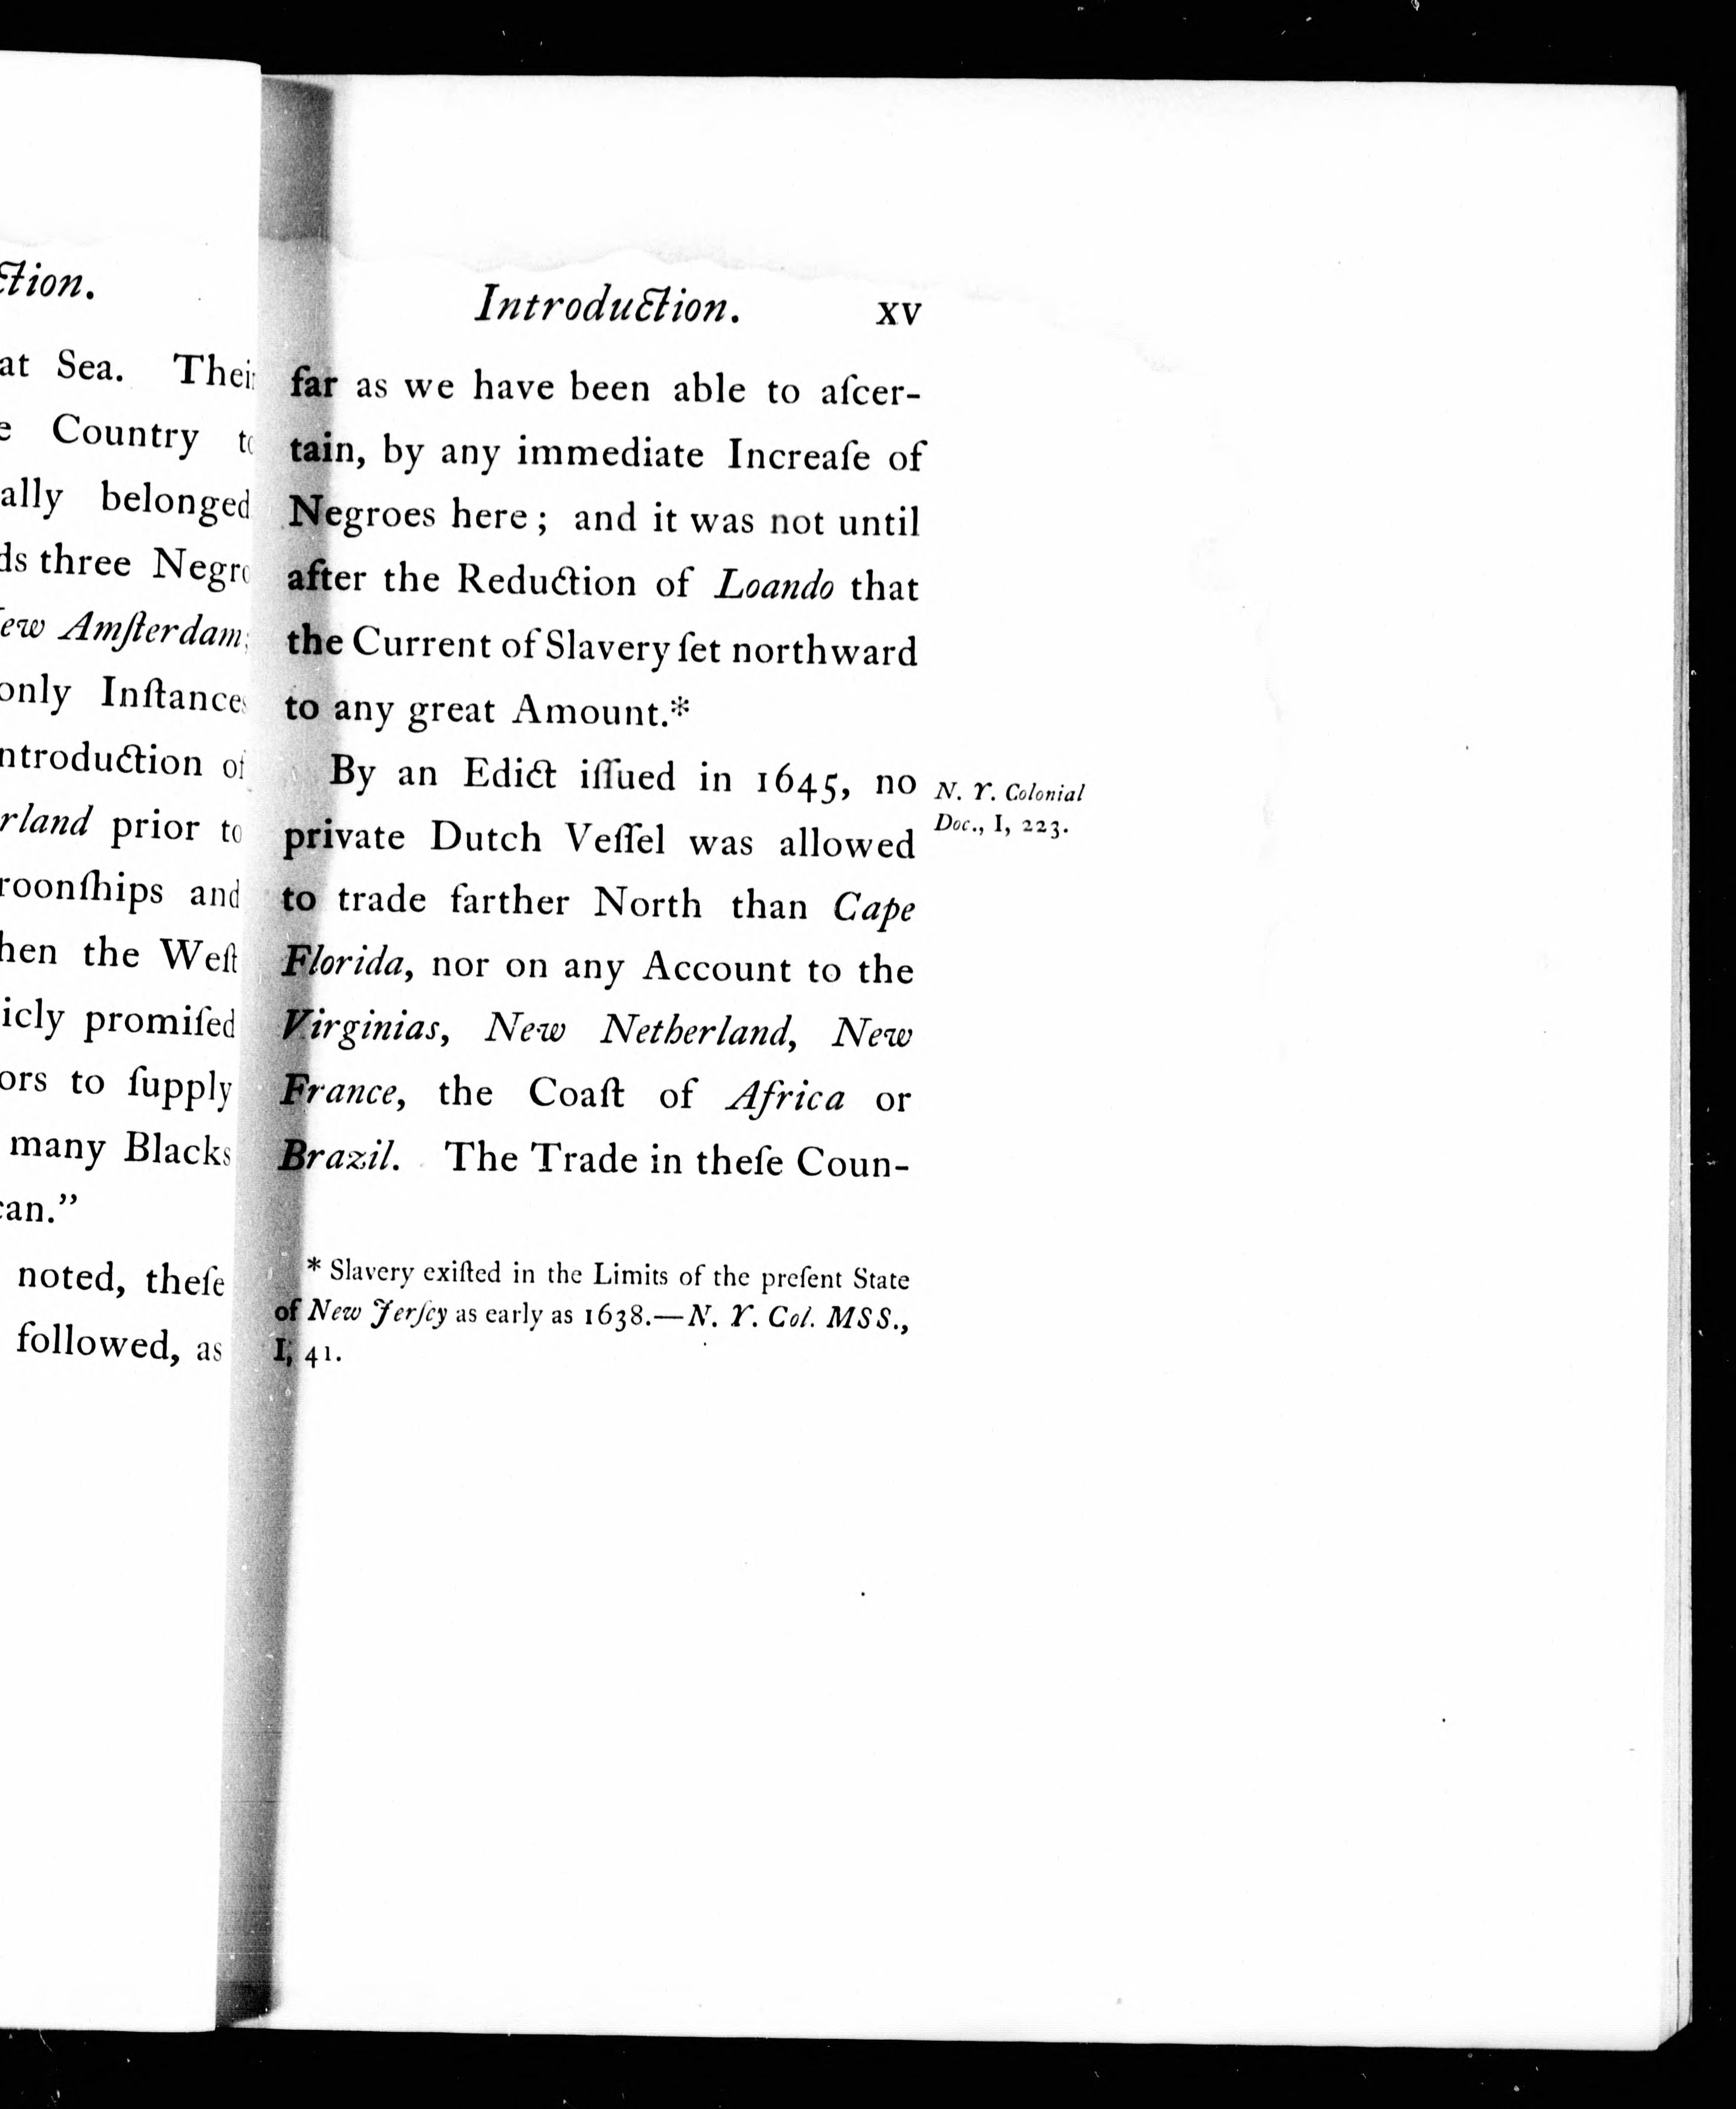 ction.
at Sea. Their
Country
ally belonged
three
Amſterdam
only Inſtance
of
prior to
and
the Weſt
promiſed
to ſupply
many Blacks
can."
noted, theſe
followed, as
Introduction. xv
far as we have been able to aſcer-
tain, by any immediate Increaſe of
Negroes here; and it was not until
after the Reduction of Loando that
the Current of Slavery ſet northward
to any great Amount.*
By an Edict iſſued in 1645, no
private Dutch Veſſel was allowed
to trade farther North than Cape
Florida, nor on any Account to the
Virginias, New Netherland, New
France, the Coaſt of Africa or
Brazil. The Trade in theſe Coun-
N. Y. Colonial
Doc., I, 223.
* Slavery exiſted in the Limits of the preſent State
of New Jerſey as early as 1638.—N. Y. Col. MSS.,
I, 41.